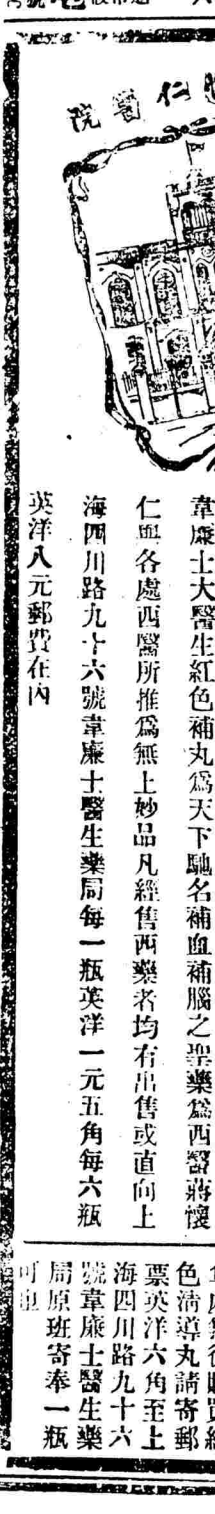 仁醫院
韋廉士大醫生紅色補丸為天下馳名補血補腦之聖藥為西醫蔣懷
仁與各處西醫所推為無上妙品凡經售西藥者均有出售或直向上
海四川路九十六號韋廉士醫生藥局每一瓶英洋一元五角每六瓶
英洋八元郵費在內
色淸導丸請寄郵
票英洋六角至上
海四川路九十六
號韋廉士醫生藥
局原班寄奉一瓶
可也